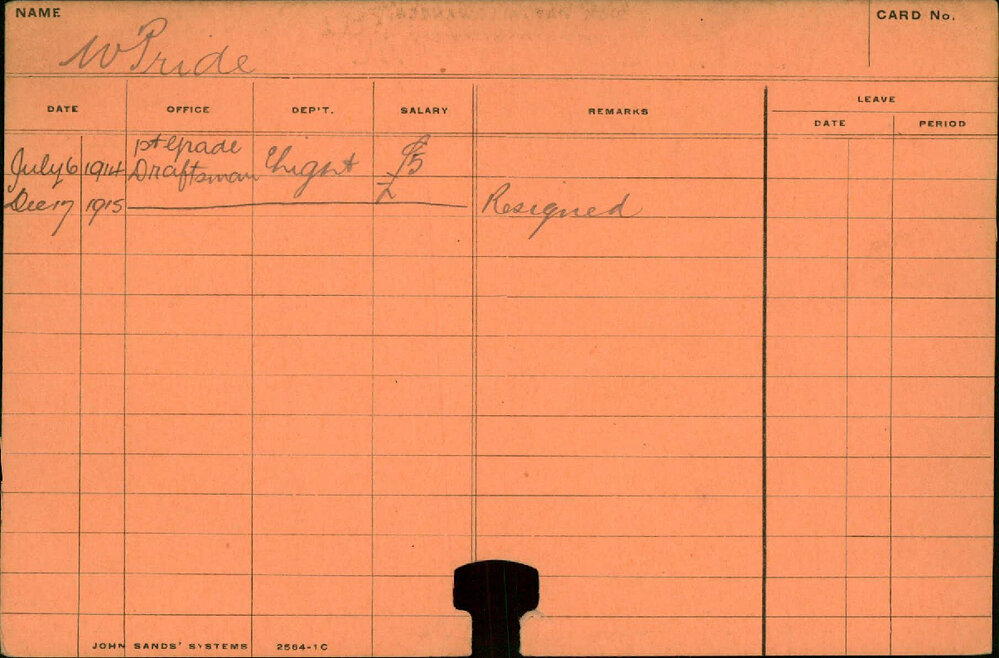 NAME
CARD No.
W Pride
DATE
OFFICE
DEP'T.
SALARY
REMARKS
LEAVE
DATE
PERIOD
July 6 1914 1st Grade Draftsman £5
Dec 17 1915 Resigned
JOHN SANDS' SYSTEMS 2564-1C